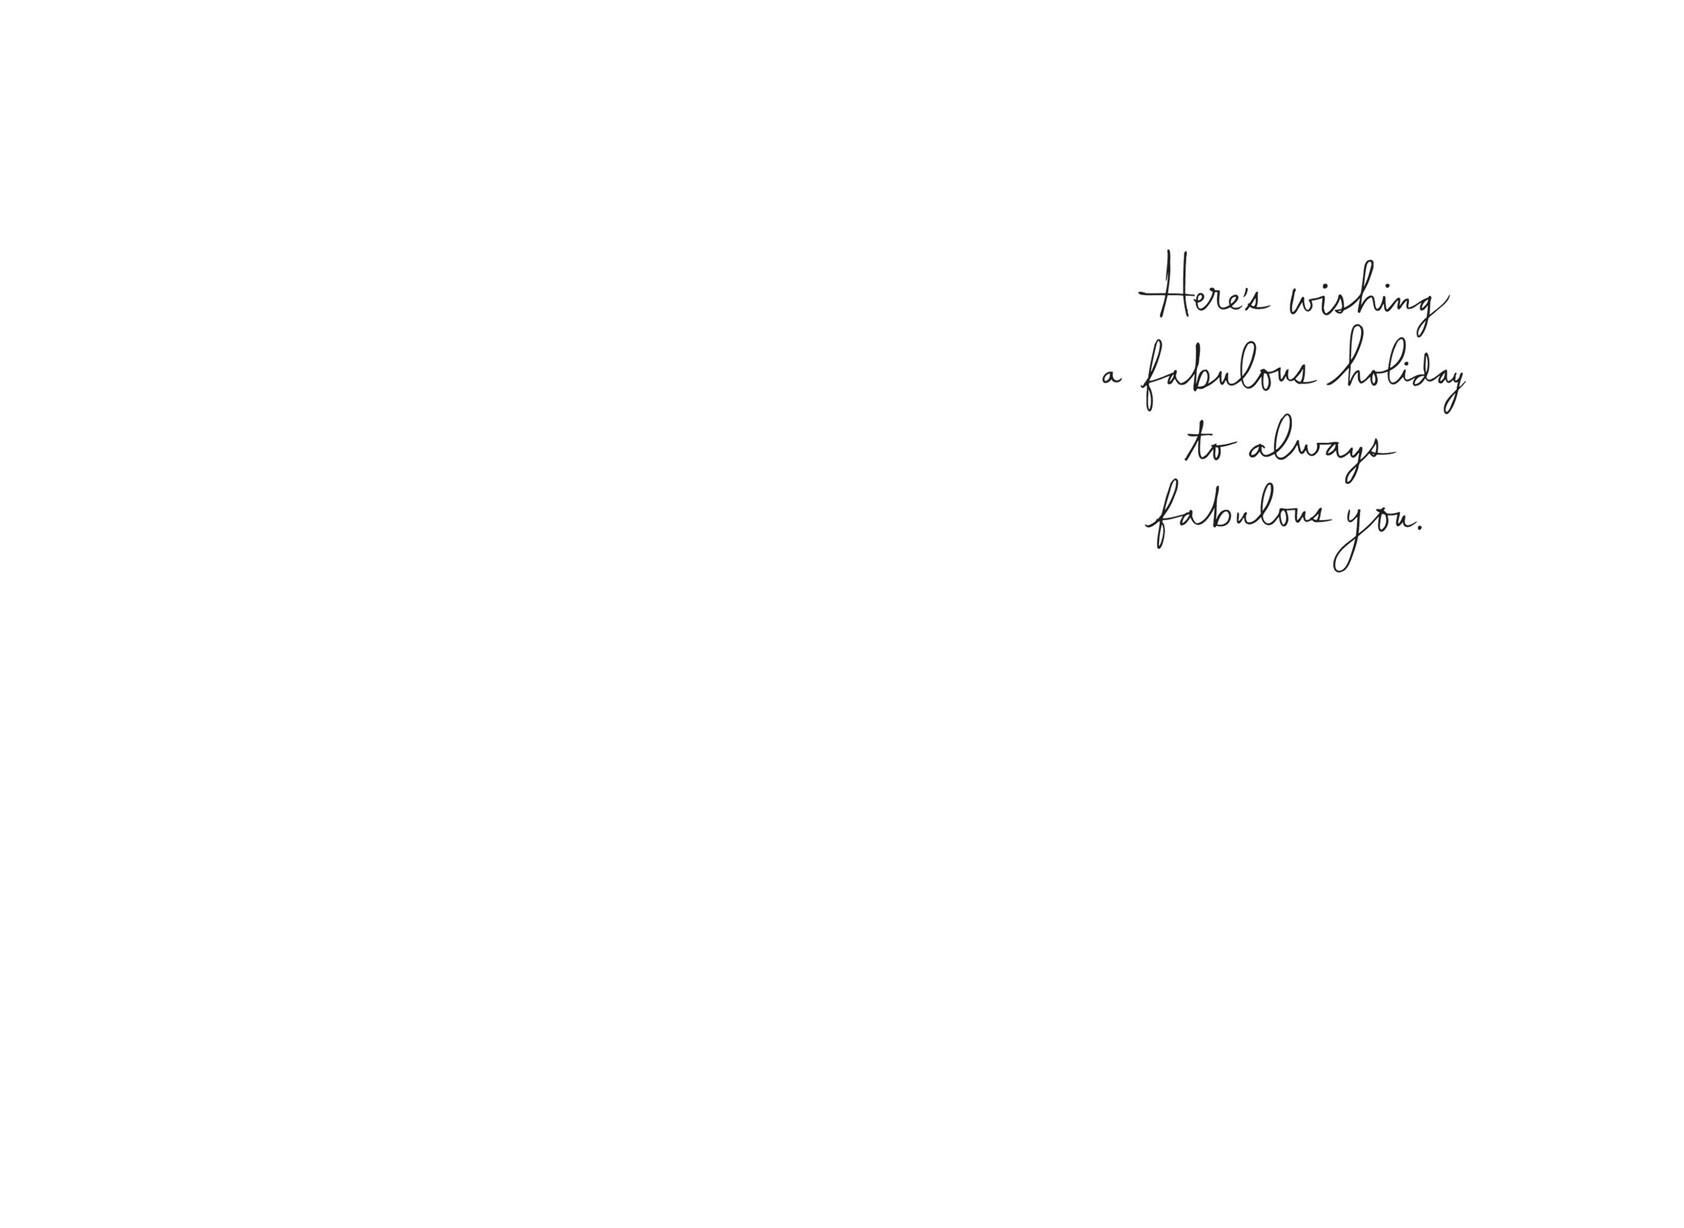 Here's wishing
a fabulous holiday
to always
fabulous you.